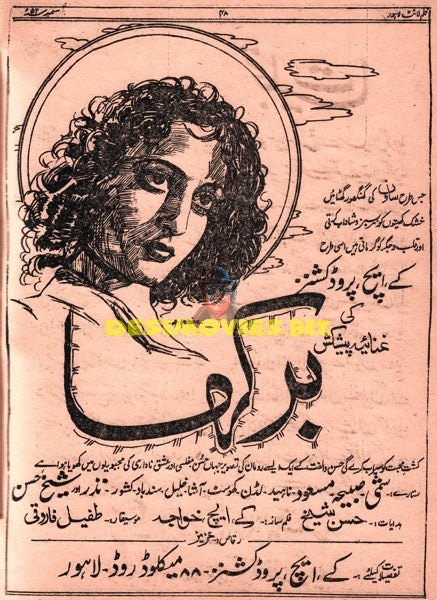 فلم لائٹ لاہور ۲۸ ستمبر ۵۲ء
جس طرح ساون کی گھنگھور گھٹائیں
خشک کھیتوں کو سرسبز و شاداب کرتی
اور قلب و جگر کو گرماتی ہیں اسی طرح
کے، ایچ، پروڈکشنز
کی
غنائیہ پیشکش
DESIMOVIES.BIZ
برکھا
کشت محبت کو سیراب کرے گی حسن و لطافت کے ایک ایسے رومان کی تصویر جہاں حسن مفلسی اور عشق ناداری کی مجبوریوں میں کھویا ہوا ہے
ستارے:۔ شمی صبیحہ مسعود ناہید۔ لڈن۔ گھوسٹ۔ آشا۔ خلیل۔ سندباد۔ کشور۔ نذر اور شیخ حسن
ہدایات:۔ حسن شیخ فلمساز:۔ کے، ایچ، خواجہ موسیقار:۔ طفیل فاروقی
رقاص:۔ عزیز
تفصیلات کیلئے:۔ کے، ایچ، پروڈکشنز۔ ۸۸ میکلوڈ روڈ۔ لاہور